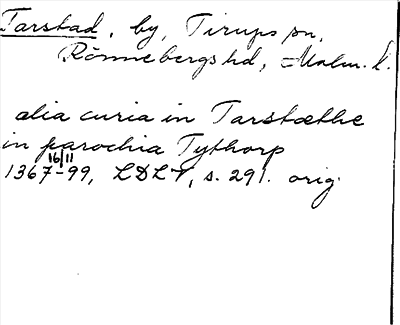 Tarstad, by, Tirups sn,
Rönnebergs hd, Malm. l.
alia curia in Tarstæthe
in parochia Tythorp
16/11
1367-99, LDLV, s. 291. orig